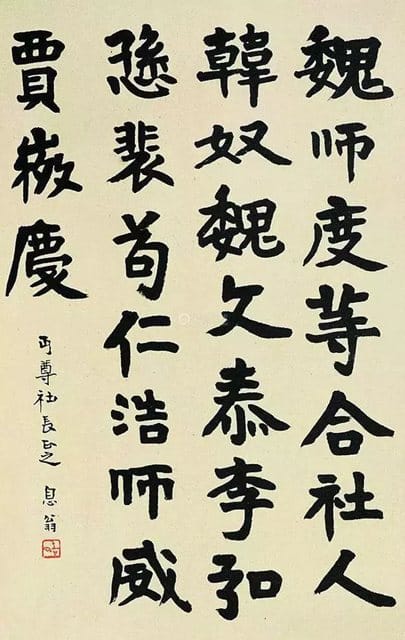 魏师度等合社人
韓奴魏文泰李弘
裴苟仁浩师威
賈慶
丏尊社長正之 息翁